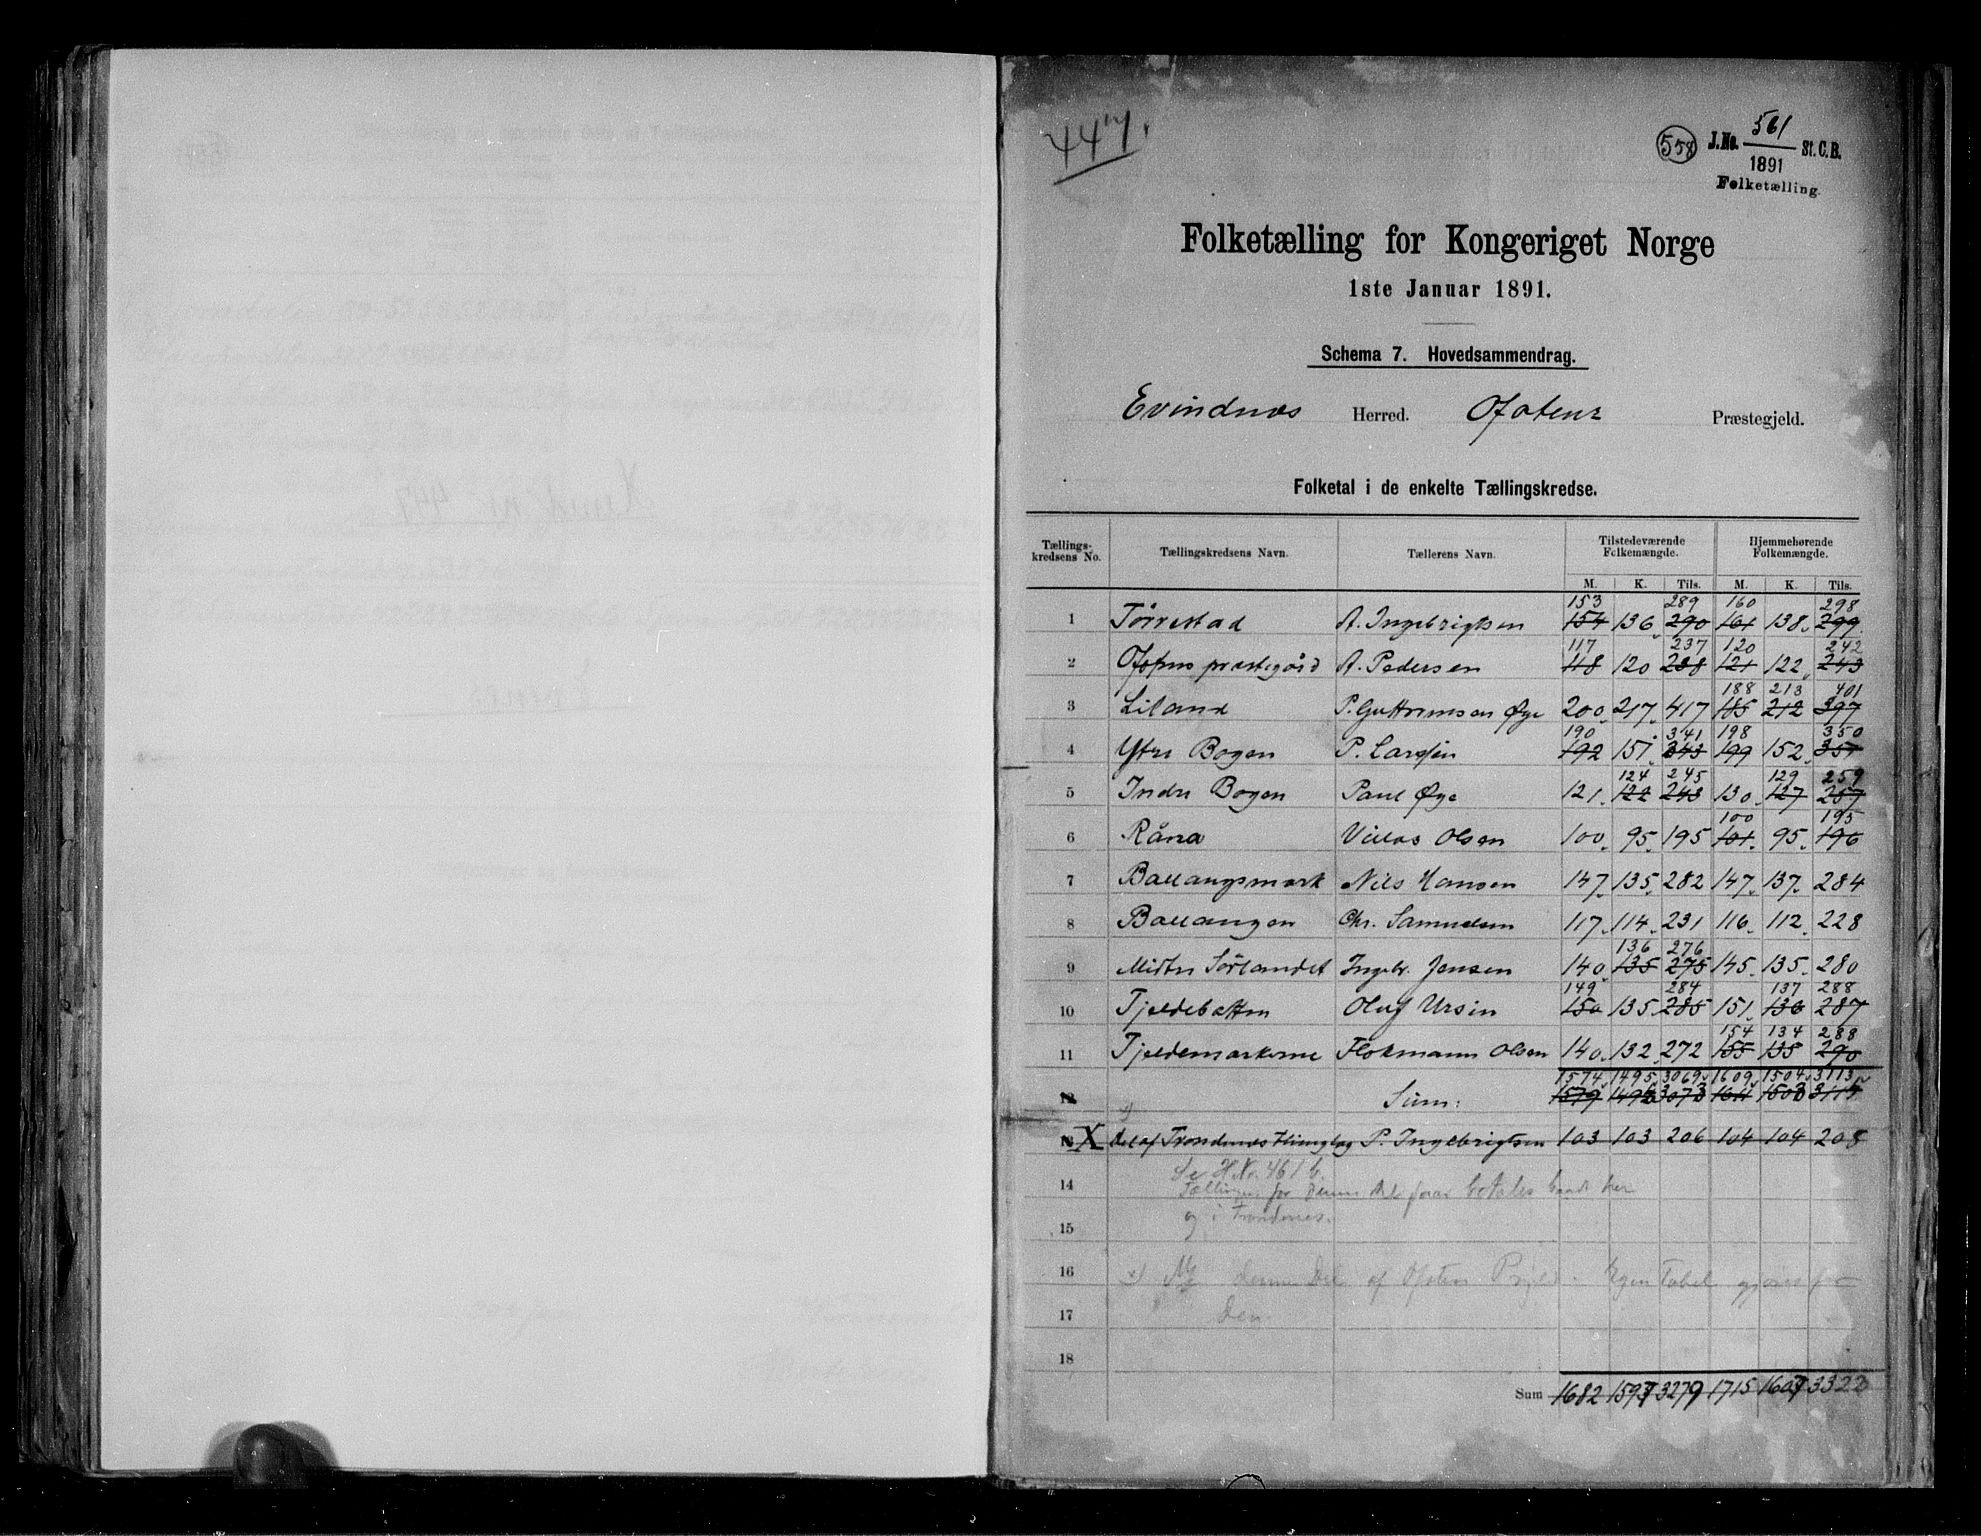 447.
558 J.No. 561 / 1891 St.C.B.
Folketælling.
Folketælling for Kongeriget Norge
1ste Januar 1891.
Schema 7. Hovedsammendrag.
Evindnæs Herred. Ofoten Præstegjeld.
Folketal i de enkelte Tællingskredse.
Tællings-kredsens No. Tællingskredsens Navn. Tællerens Navn. Tilstedeværende Folkemængde. Hjemmehørende Folkemængde.
M. K. Tils. M. K. Tils.
153 289 160 298
1 Tørrestad A. Ingebrigtsen 154 136 290 161 138 299
117 237 120 242
2 Ofotens præstegård A. Pedersen 118 120 238 121 122 243
188 213 401
3 Liland P. Guttormsen Øye 200 217 417 185 212 397
190 341 198 350
4 Ytre Bogen P. Larssen 192 151 343 199 152 351
124 245 129 259
5 Indre Bogen Paul Øye 121 122 243 130 127 257
100 195
6 Råna Villas Olsen 100 95 195 101 95 196
7 Ballangsmark Nils Hansen 147 135 282 147 137 284
8 Ballangen Chr. Samuelsen 117 114 231 116 112 228
136 276
9 Midtre Sørlandet Ingebr. Jensen 140 135 275 145 135 280
149 284 137 288
10 Tjeldebotten Oluf Ursin 150 135 285 151 136 287
154 134 288
11 Tjeldemarkerne Flokmann Olsen 140 132 272 155 135 290
1574 1495 3069 1609 1504 3113
12 Sum: 1579 1494 3073 1611 1503 3114
X Del af Trondenæs Thinglag P. Ingebrigtsen 103 103 206 104 104 208
Se H.No. 461 b.
14 Tællingen for denne Del faar betales baade her
15 og i Trondenes.
16 x) denne Del af Ofoten Prgjld. Egen Tabel gjøres for
17 den
18
Sum 1682 1597 3279 1715 1607 3322
Herred nr. 447